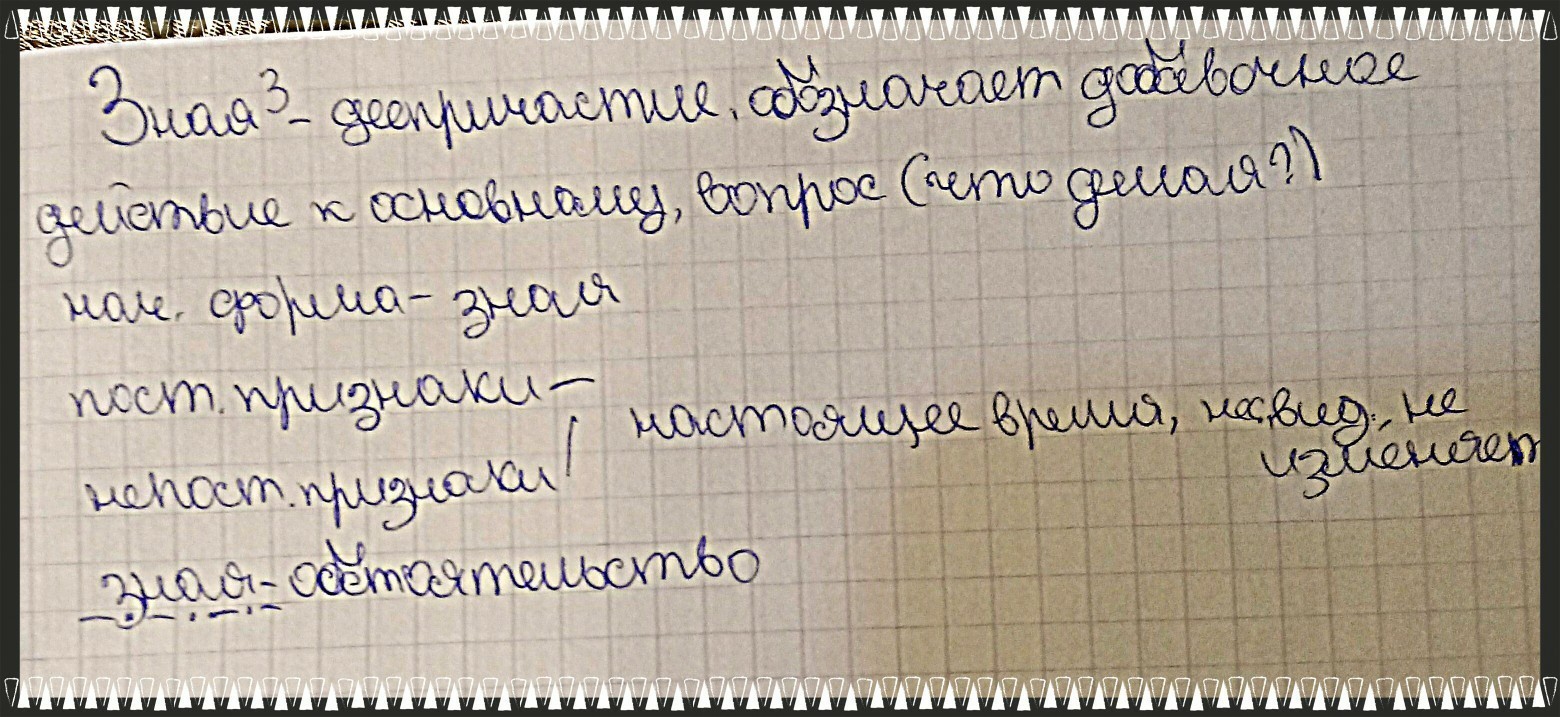 Зная³ - деепричастие, обозначает добавочное
действие к основному, вопрос (что делая?)
нач. форма - зная
пост. признаки -
настоящее время, нес.вид., не
изменяет
непост. признаки
зная - обстоятельство